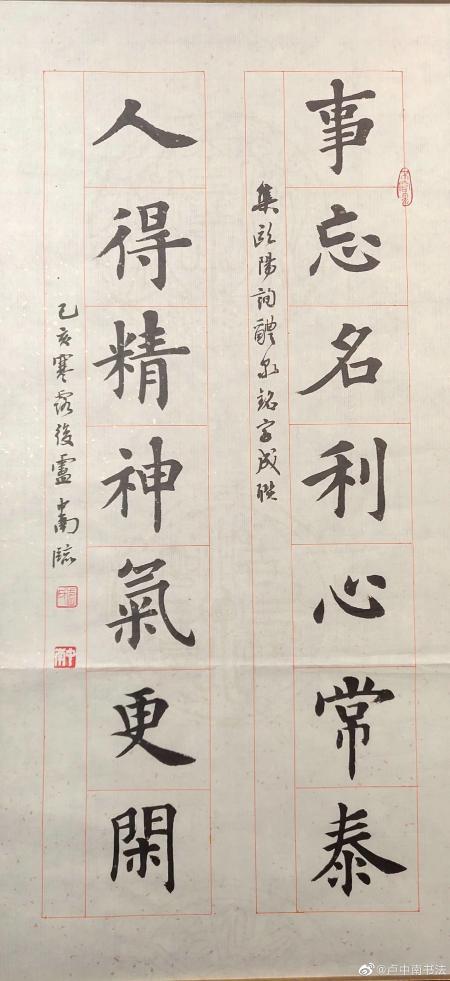 事忘名利心常泰
集欧陽詢醴泉銘字成联
人得精神氣更閑
己亥寒露後盧中南臨
@卢中南书法